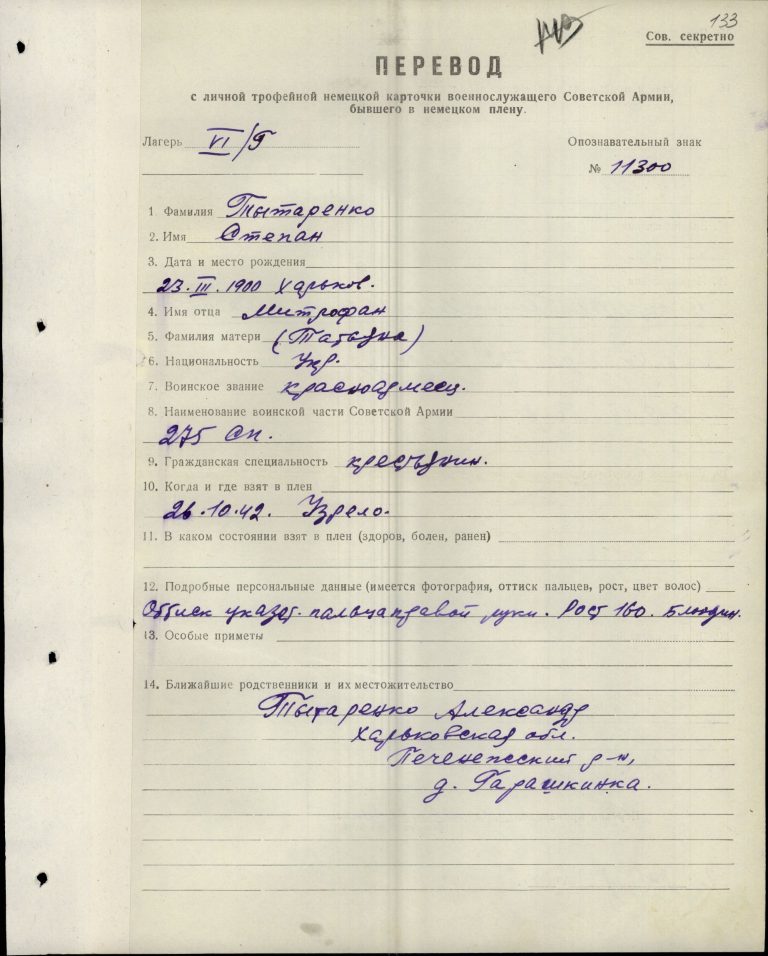 133
Сов. секретно
ПЕРЕВОД
с личной трофейной немецкой карточки военнослужащего Советской Армии,
бывшего в немецком плену.
Лагерь VI/Г
Опознавательный знак
№ 11300
1. Фамилия Тытаренко
2. Имя Степан
3. Дата и место рождения
23. III. 1900 Харьков.
4. Имя отца Митрофан
5. Фамилия матери (Татьяна)
6. Национальность Укр.
7. Воинское звание красноармеец.
8. Наименование воинской части Советской Армии
275 сп.
9. Гражданская специальность крестьянин.
10. Когда и где взят в плен
26.10.42. Узрело.
11. В каком состоянии взят в плен (здоров, болен, ранен)
12. Подробные персональные данные (имеется фотография, оттиск пальцев, рост, цвет волос)
Оттиск указат. пальца правой руки. Рост 160. Блондин.
13. Особые приметы
14. Ближайшие родственники и их местожительство
Тытаренко Александр
Харьковская обл.
Печенежский р-н,
д. Гарашкинка.